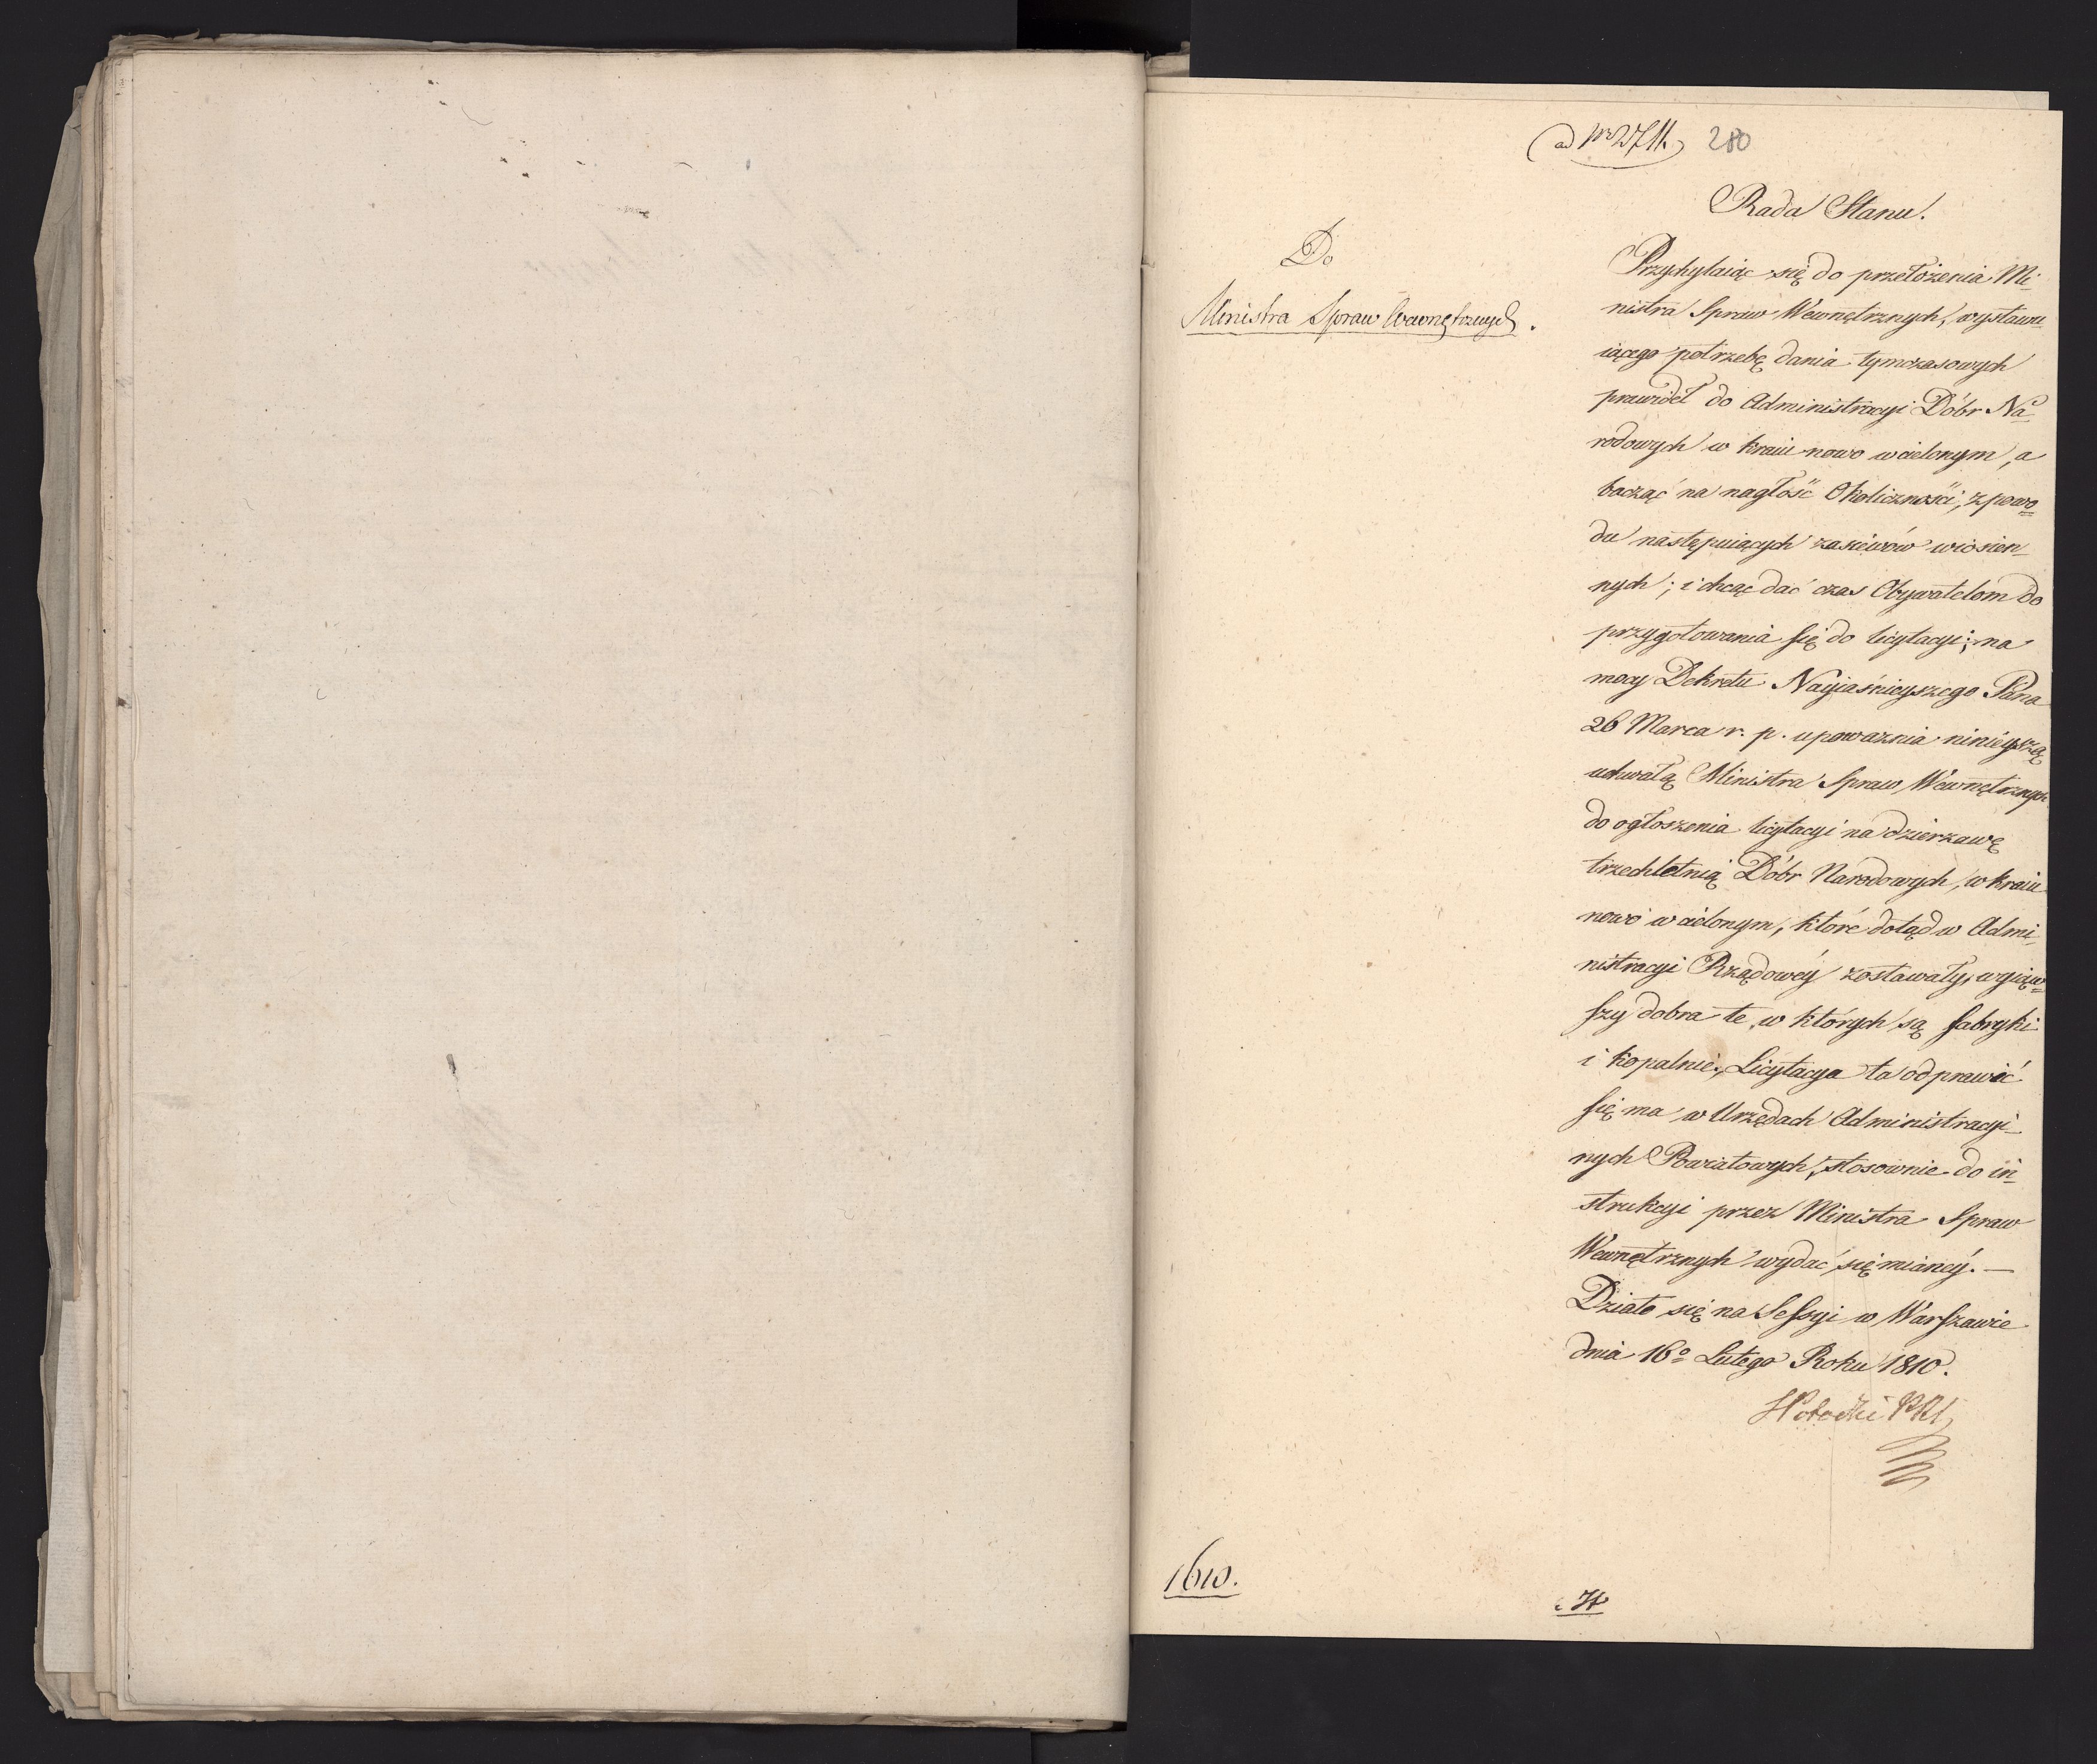 ad Nro 2711. 280
Rada Stanu.
Do
Ministra Spraw Wewnętrznych.
Przychylaiąc się do przełożenia Mi-
nistra Spraw Wewnętrznych, wystawu-
iącego potrzebę dania tymczasowych
prawideł do Administracyi Dóbr Na-
rodowych w kraiu nowo wcielonym, a
bacząc na nagłość Okoliczności, z powo-
du następuiących zasiewów wiosien-
nych; i chcąc dać czas Obywatelom do
przygotowania się do licytacyi; na
mocy Dekretu Nayiaśnieyszego Pana
26 Marca r. p. upoważnia ninieyszą
uchwałą Ministra Spraw Wewnętrznych
do ogłoszenia licytacyi na dzierzawę
trzechletnią Dóbr Narodowych, w kraiu
nowo wcielonym, które dotąd w Admi-
nistracyi Rządowéy zostawały, wyiąw-
szy dobra te, w których są fabryki
i kopalnie. Licytacya ta odprawić
się ma w Urzędach Administracyi-
nych Powiatowych, stosownie do in-
strukcyi przez Ministra Spraw
Wewnętrznych wydać się mianéy. —
Działo się na Sessyi w Warszawie
dnia 16o Lutego Roku 1810.
SPotocki PRS
1610.